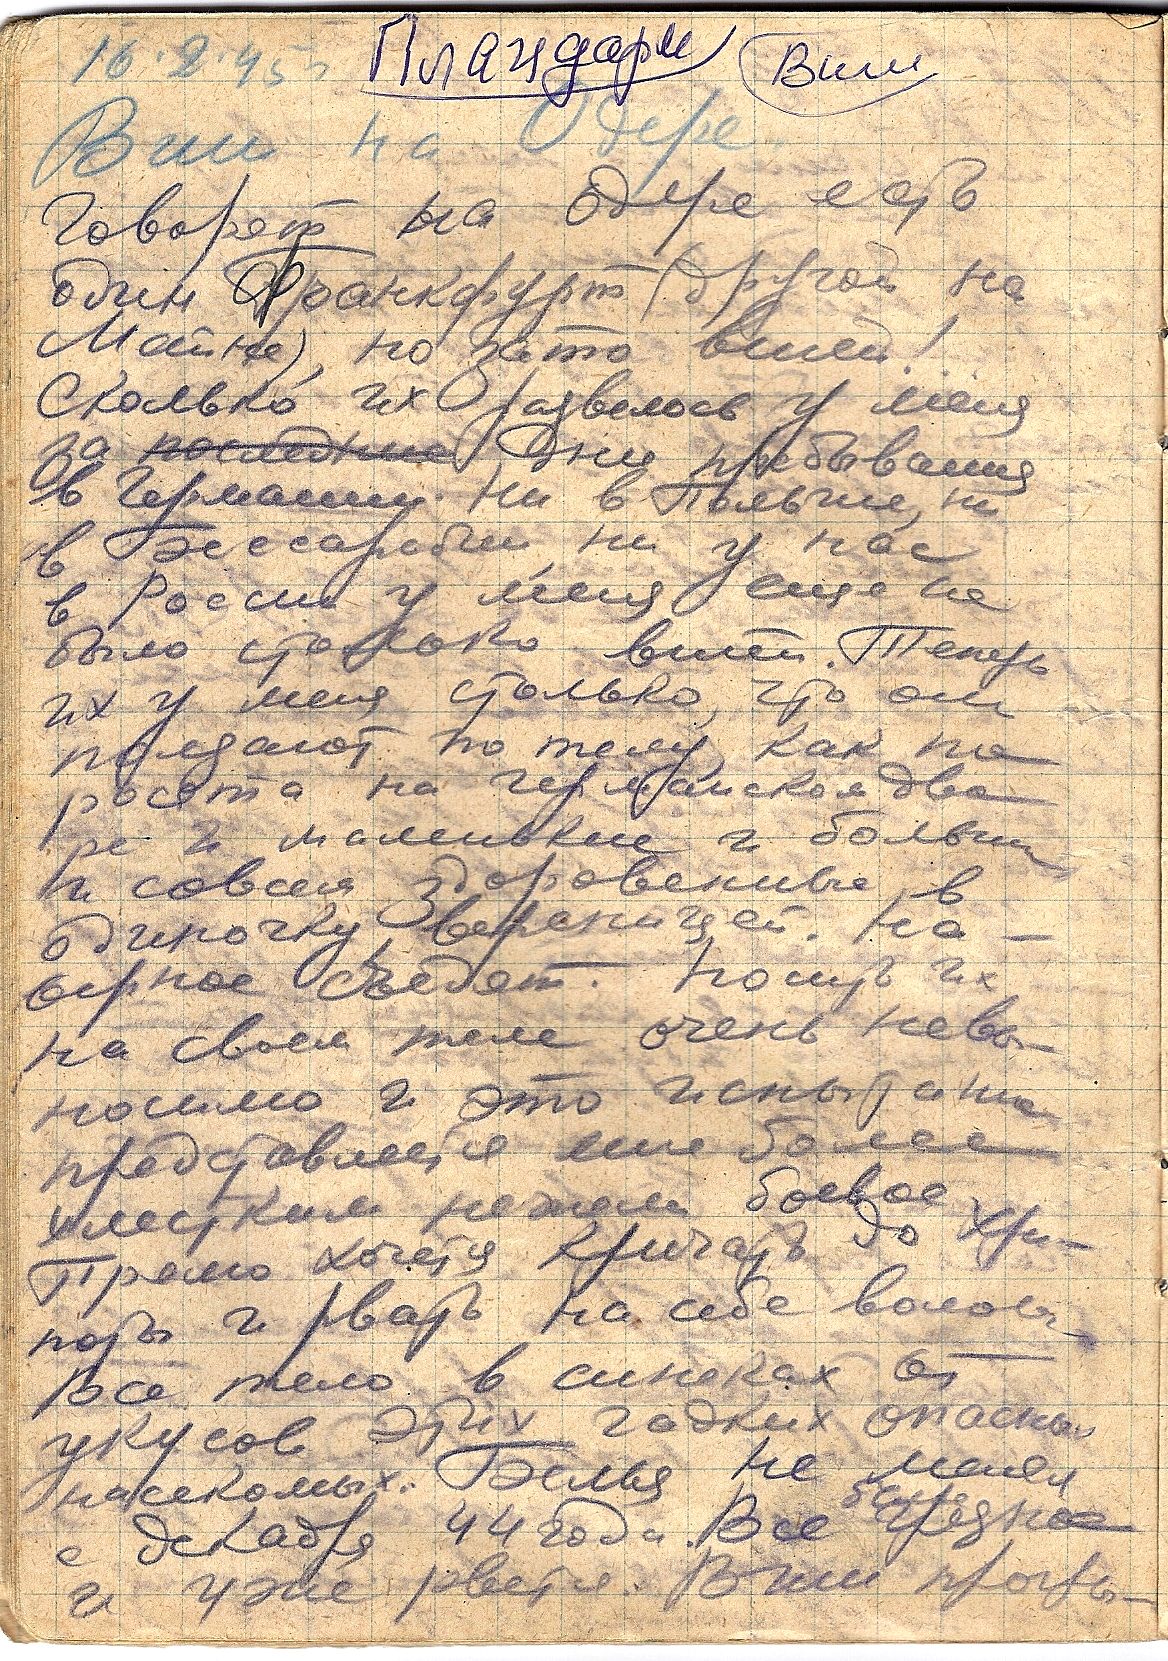 16.2.45 Плацдарм Вши
Вши на Одере.
Говорят на Одере есть
один Франкфурт (другой на
Майне), но зато вшей!
Сколько их развелось у меня
за последние дни пребывания
в Германии. Ни в Польше, ни
в Бессарабии ни у нас
в России у меня еще не
было столько вшей. Теперь
их у меня столько, что они
ползают по телу, как по
росята на германском дво
ре и маленькие и больши
и совсем здоровенные, в
одиночку, вереницей. На-
верное съедят. Носить их
на своем теле очень невы-
носимо и это испытание
представляется мне более
хлестким нежели боевое.
Прямо хочется кричать до хри-
поты и рвать на себе волосы.
Все тело в синяках от
укусов этих гадких опасных
насекомых. Белья не менял
с декабря 44 года. Все белье грязное
и уже рвется. Вши прогры-